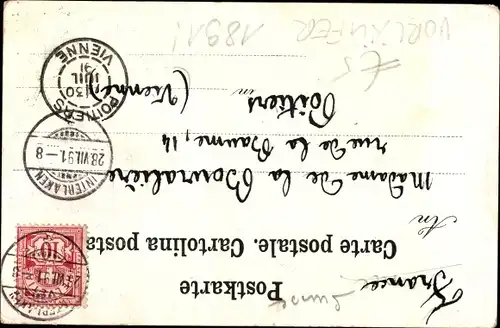 Postkarte
Carte postale. Cartolina posta
An
Madame de la
rue de la Baume, 14
Poitiers
en
(Vienne)
France
INTERLAKEN
28.VII.91.-8
POITIERS
30
JUIL
91
VIENNE
10
VORLÄUFER
1891!